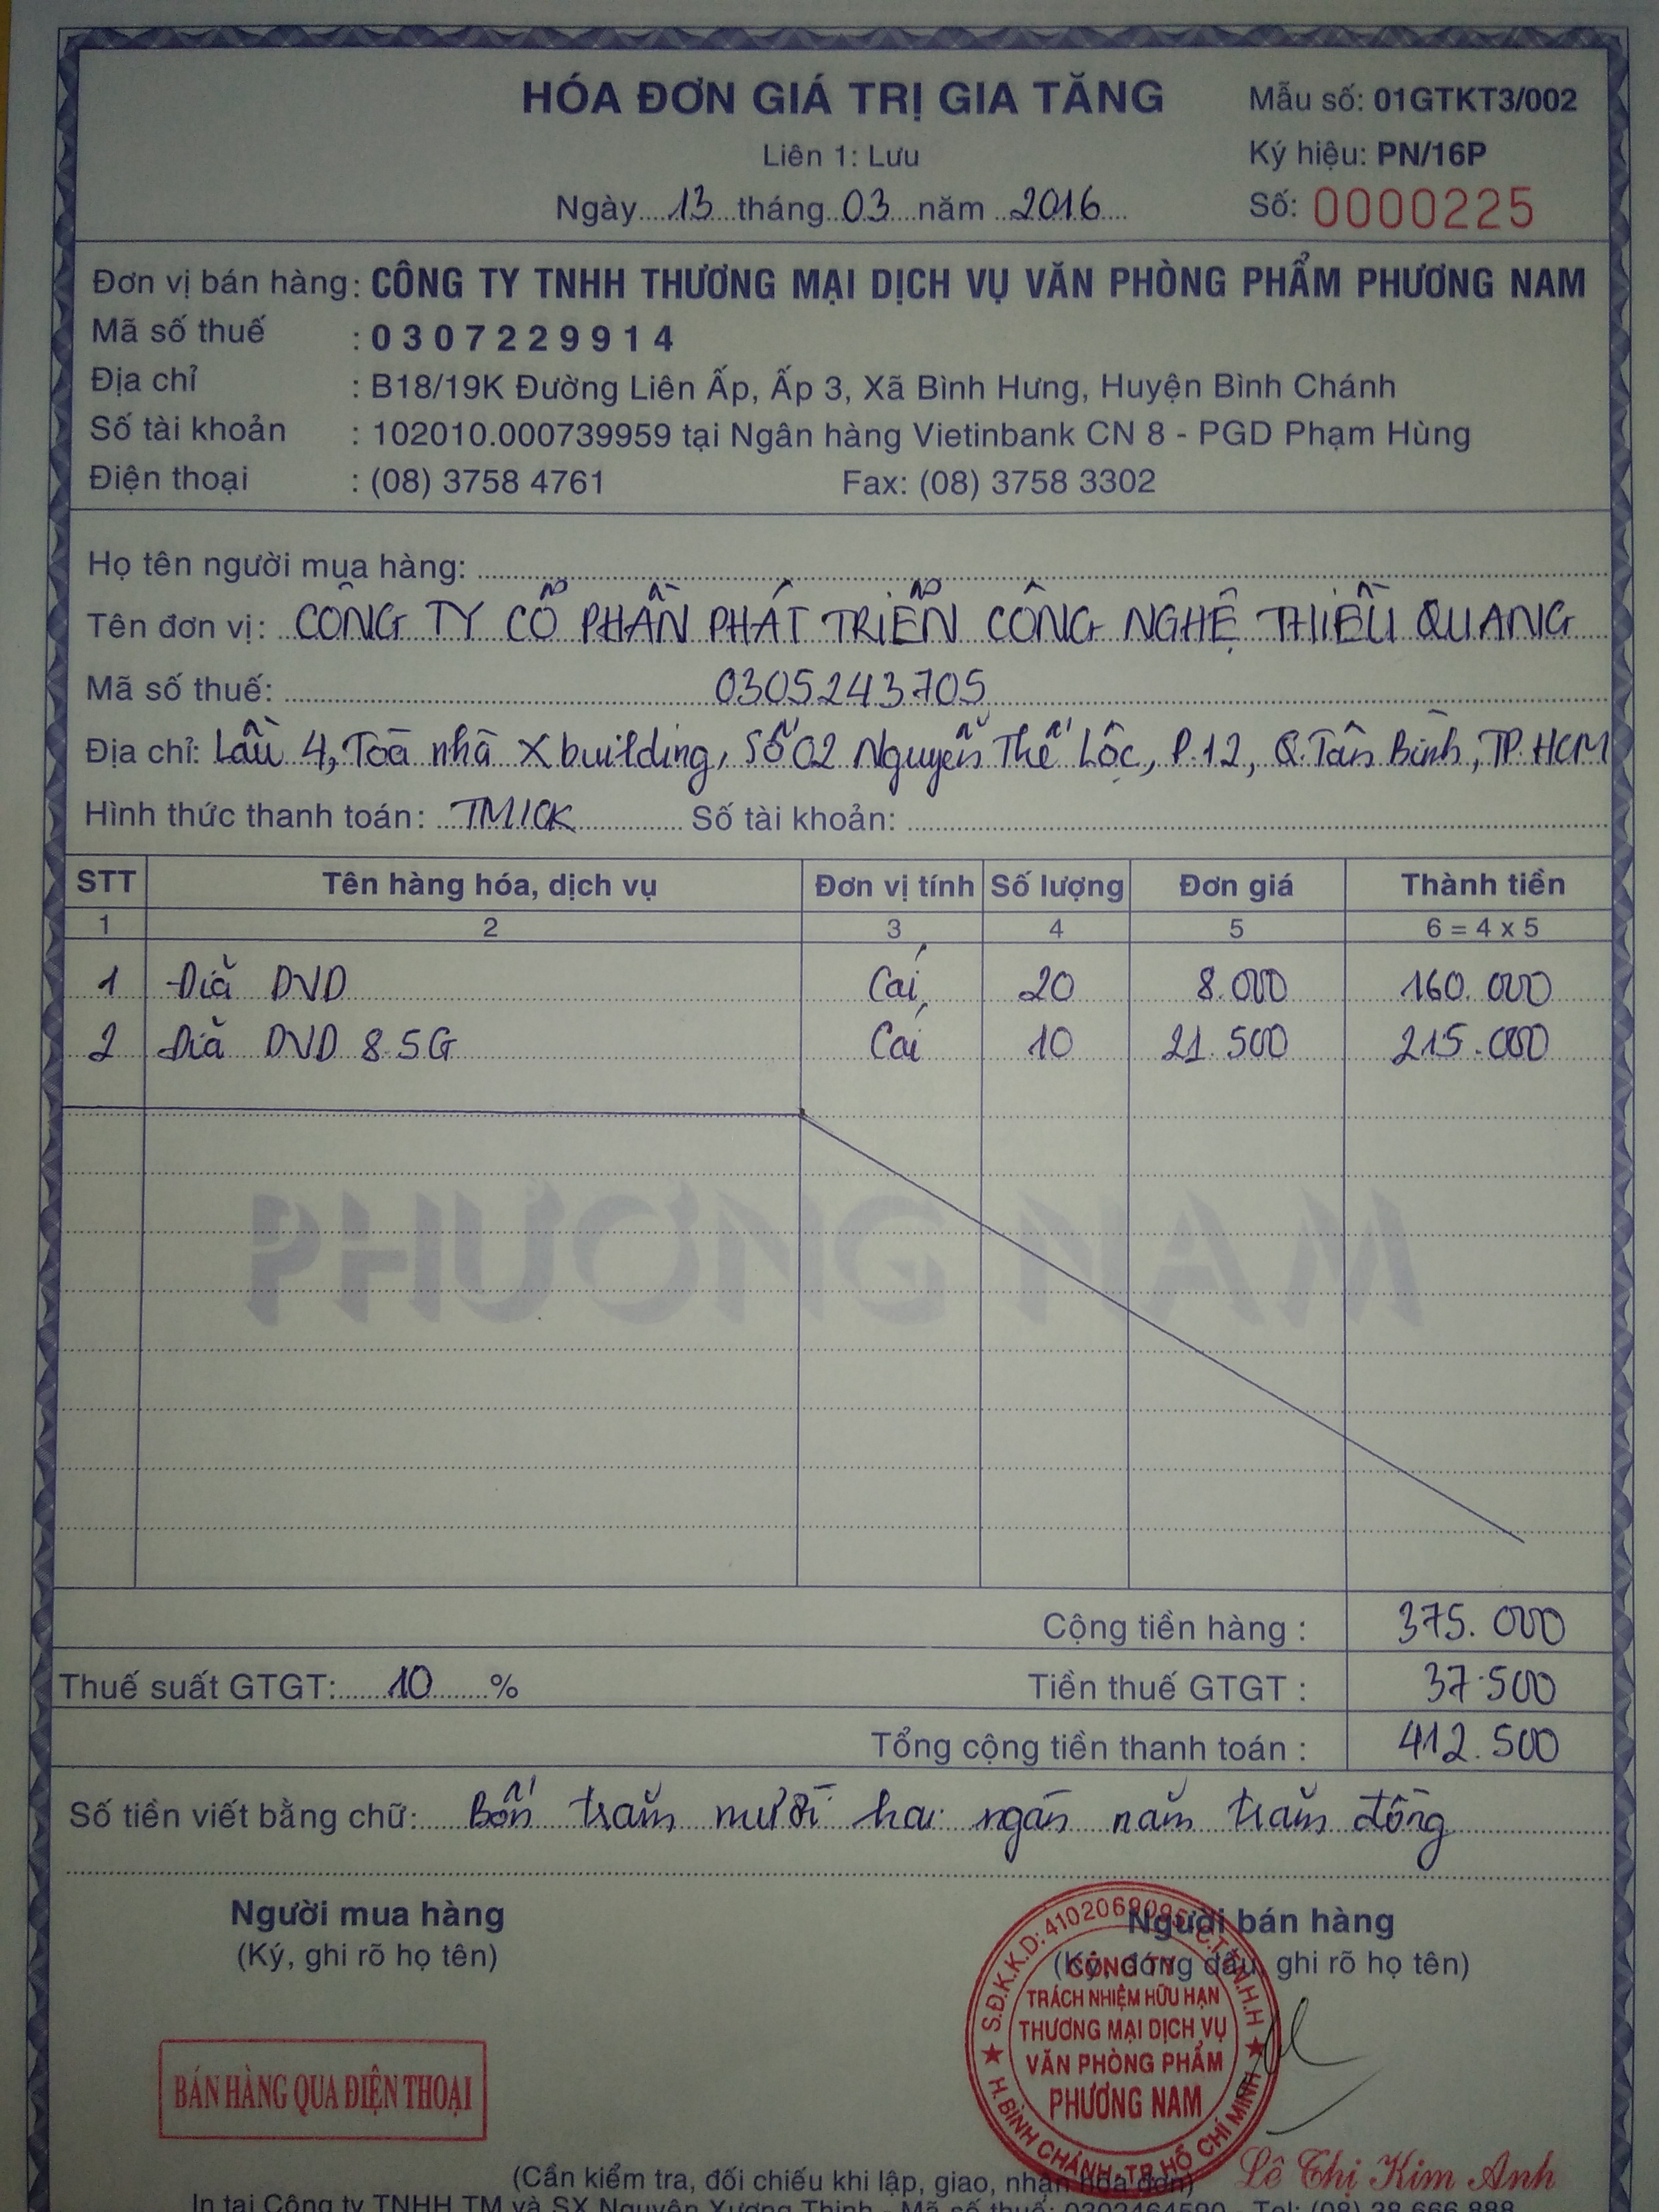 HÓA ĐƠN GIÁ TRỊ GIA TĂNG
Mẫu số: 01GTKT3/002
Liên 1: Lưu
Ký hiệu: PN/16P
Ngày 13 tháng 03 năm 2016
Số: 0000225
Đơn vị bán hàng: CÔNG TY TNHH THƯƠNG MẠI DỊCH VỤ VĂN PHÒNG PHẨM PHƯƠNG NAM
Mã số thuế : 0307229914
Địa chỉ : B18/19K Đường Liên Ấp, Ấp 3, Xã Bình Hưng, Huyện Bình Chánh
Số tài khoản : 102010.000739959 tại Ngân hàng Vietinbank CN 8 - PGD Phạm Hùng
Điện thoại : (08) 3758 4761 Fax: (08) 3758 3302
Họ tên người mua hàng:
Tên đơn vị: CÔNG TY CỔ PHẦN PHÁT TRIỂN CÔNG NGHỆ THIỀU QUANG
Mã số thuế: 0305243705
Địa chỉ: Lầu 4, Toà nhà Xbuilding, Số 02 Nguyễn Thế Lộc, P.12, Q.Tân Bình, TP.HCM
Hình thức thanh toán: TM/CK Số tài khoản:
STT Tên hàng hóa, dịch vụ Đơn vị tính Số lượng Đơn giá Thành tiền
1 2 3 4 5 6 = 4 x 5
1 Dĩa DVD Cái 20 8.000 160.000
2 Dĩa DVD 8.5G Cái 10 21.500 215.000
PHƯƠNG NAM
Cộng tiền hàng : 375.000
Thuế suất GTGT: 10 % Tiền thuế GTGT : 37.500
Tổng cộng tiền thanh toán : 412.500
Số tiền viết bằng chữ: Bốn trăm mười hai ngàn năm trăm đồng
Người mua hàng
(Ký, ghi rõ họ tên)
Người bán hàng
(Ký, đóng dấu, ghi rõ họ tên)
S.Đ.K.K.D: 4102069085-C.T.T.N.H.H
CÔNG TY
TRÁCH NHIỆM HỮU HẠN
THƯƠNG MẠI DỊCH VỤ
VĂN PHÒNG PHẨM
PHƯƠNG NAM
H.BÌNH CHÁNH-TP. HỒ CHÍ MINH
BÁN HÀNG QUA ĐIỆN THOẠI
Lê Thị Kim Anh
(Cần kiểm tra, đối chiếu khi lập, giao, nhận hóa đơn)
In tại Công ty TNHH TM và SX Nguyên Xương Thịnh - Mã số thuế: 0302464590 - Tel: (08) 38 666 888